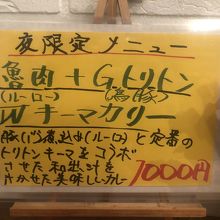 夜限定メニュー
魯肉+G.トリトン
(ルーロー) (鶏豚)
Wキーマカリー
豚(バラ煮込み(ルーロ)と定番の
トリトンキーマをコラボ
させた和出汁を
きかせた美味しいカレー
1000円